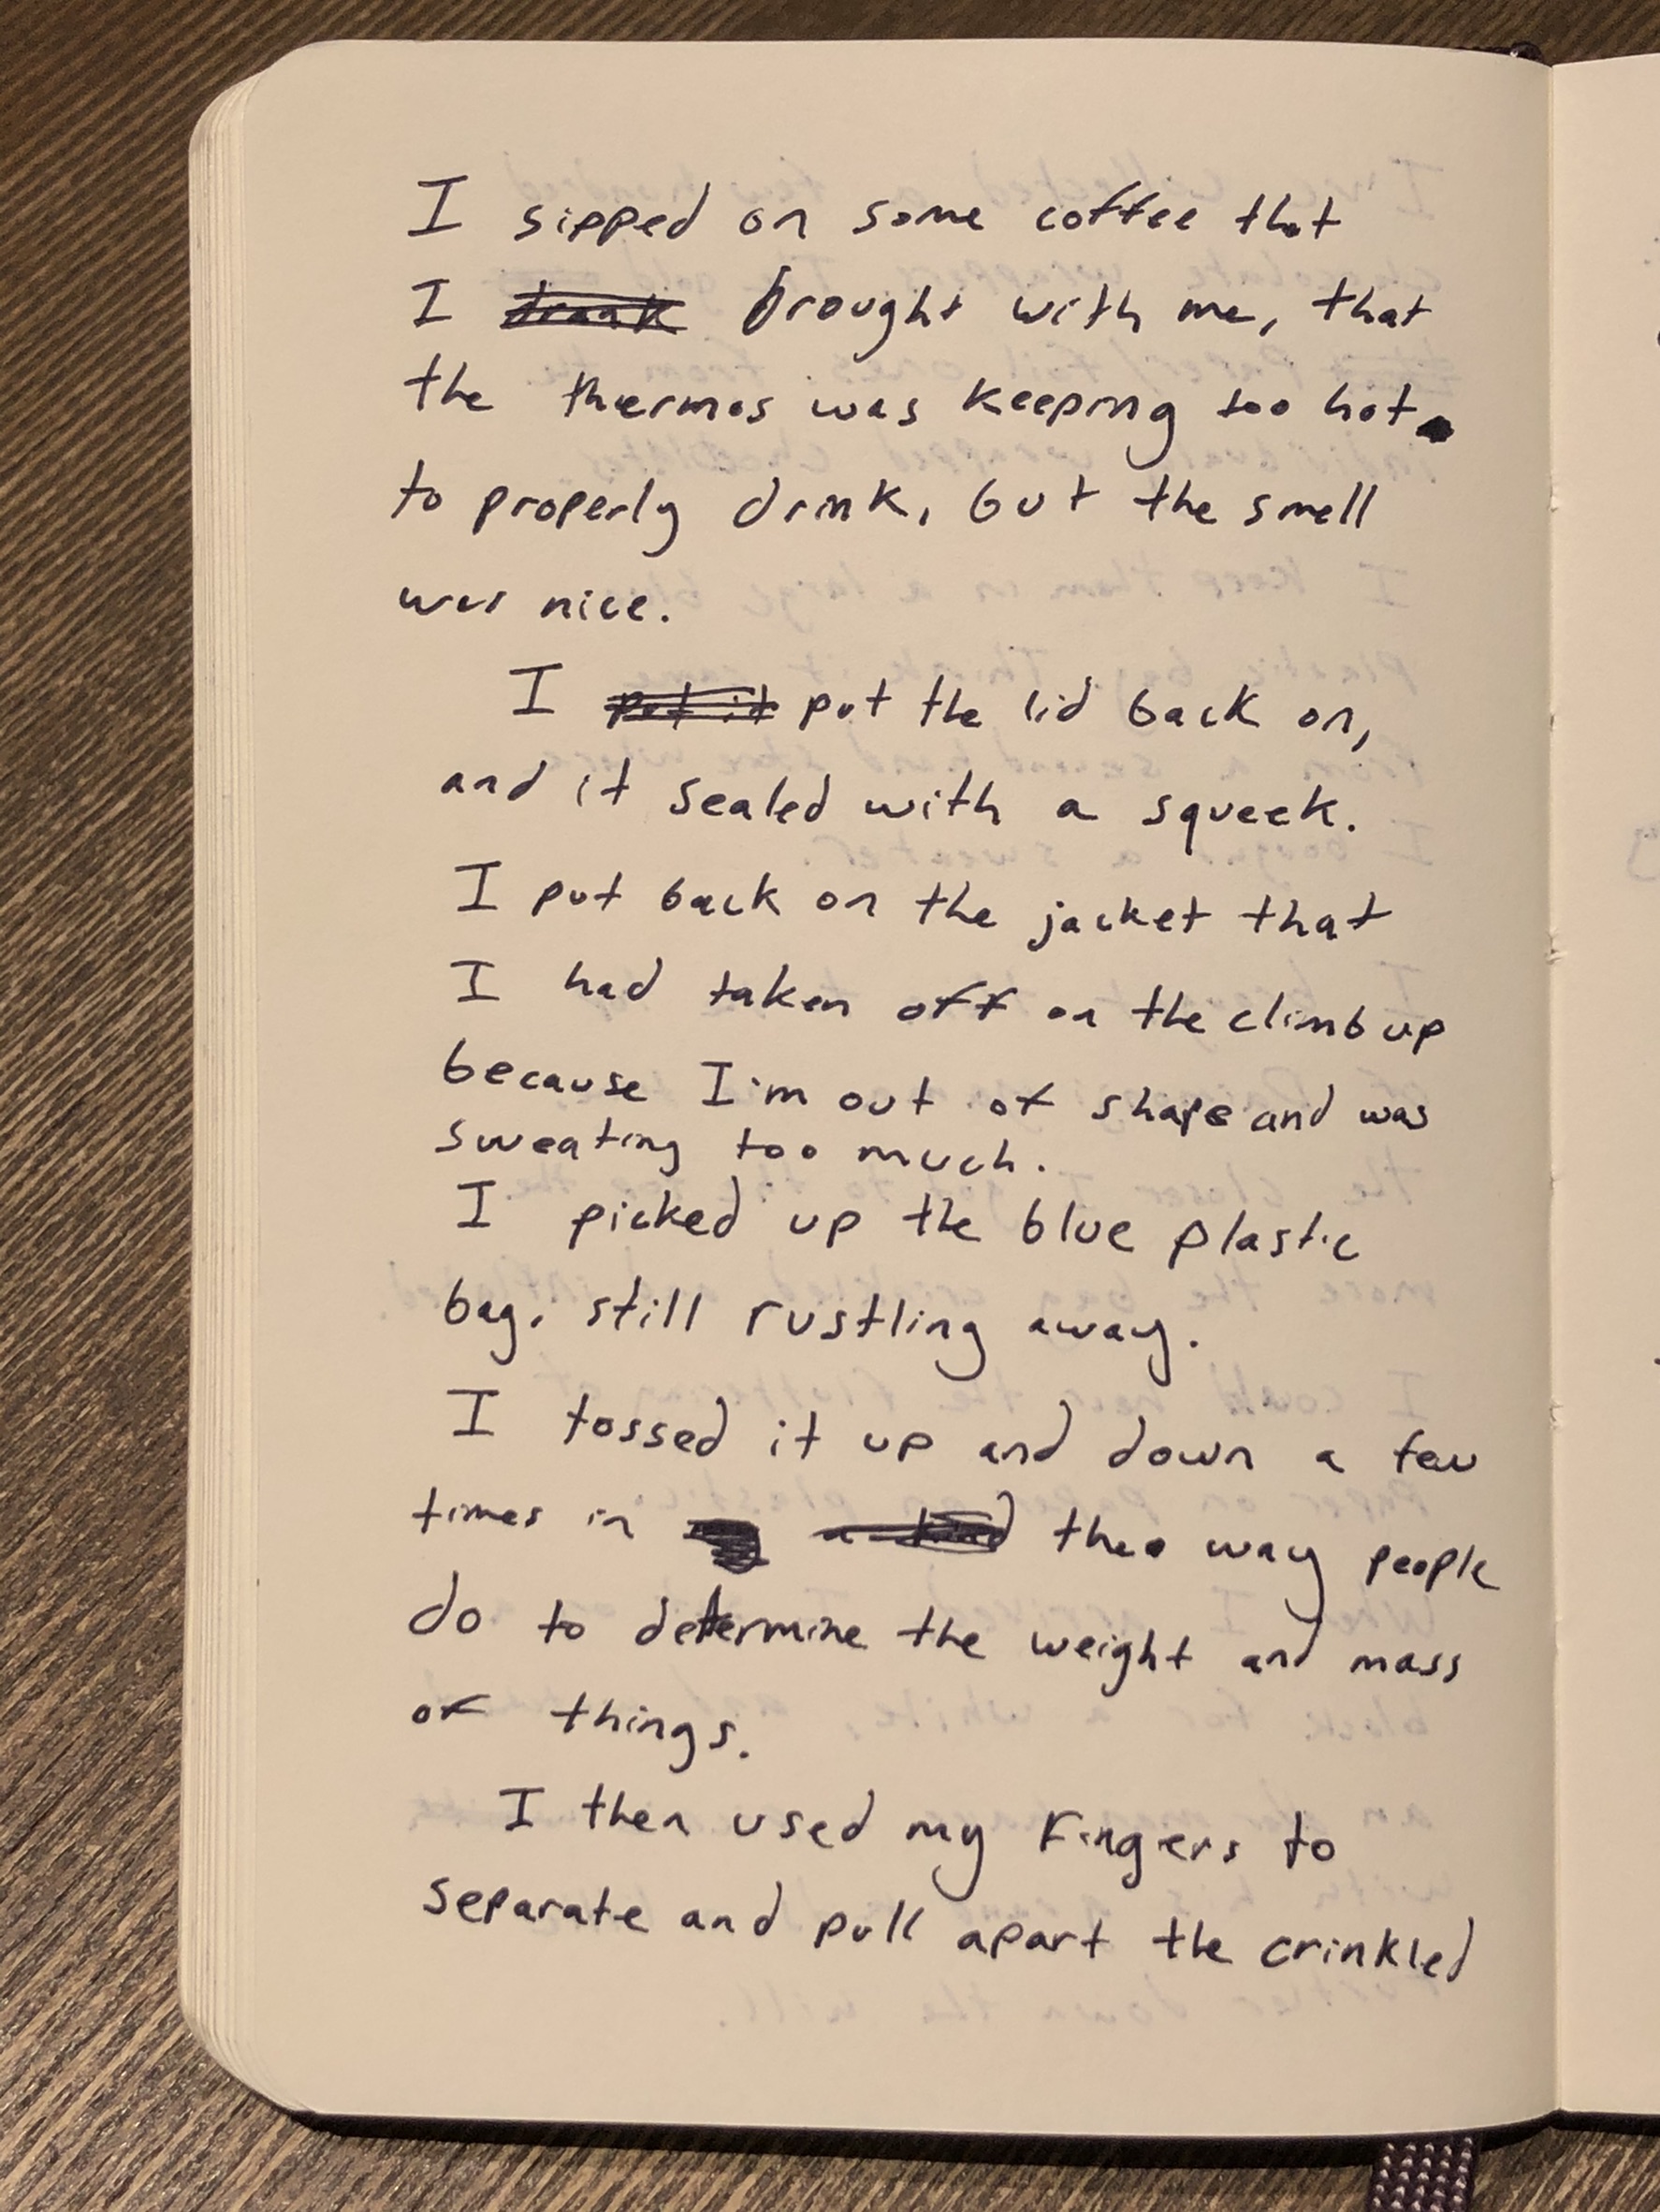 I sipped on some coffee that
I drank brought with me, that
the thermos was keeping too hot
to properly drink, but the smell
was nice.
I put it put the lid back on,
and it sealed with a squeek.
I put back on the jacket that
I had taken off on the climb up
because I'm out of shape and was
sweating too much.
I picked up the blue plastic
bag, still rustling away.
I tossed it up and down a few
times in a the way people
do to determine the weight and mass
of things.
I then used my fingers to
separate and pull apart the crinkled